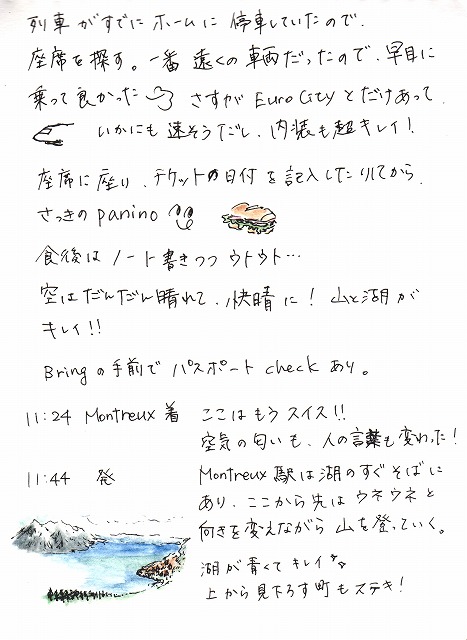 列車がすでにホームに停車していたので、
座席を探す。一番遠くの車両だったので、早目に
乗って良かった さすがEuroCityとだけあって、
いかにも速そうだし、内装も超キレイ！
座席に座り、チケットの日付を記入したりしてから、
さっきのpanino
食後はノート書きつつウトウト…
空はだんだん晴れて、快晴に！山と湖が
キレイ!!
Bringの手前でパスポートcheckあり。
11:24 Montreux 着 ここはもうスイス!!
空気の匂いも、人の言葉も変わった！
11:44 発 Montreux駅は湖のすぐそばに
あり、ここから先はウネウネと
向きを変えながら山を登っていく。
湖が青くてキレイ
上から見下ろす町もステキ！